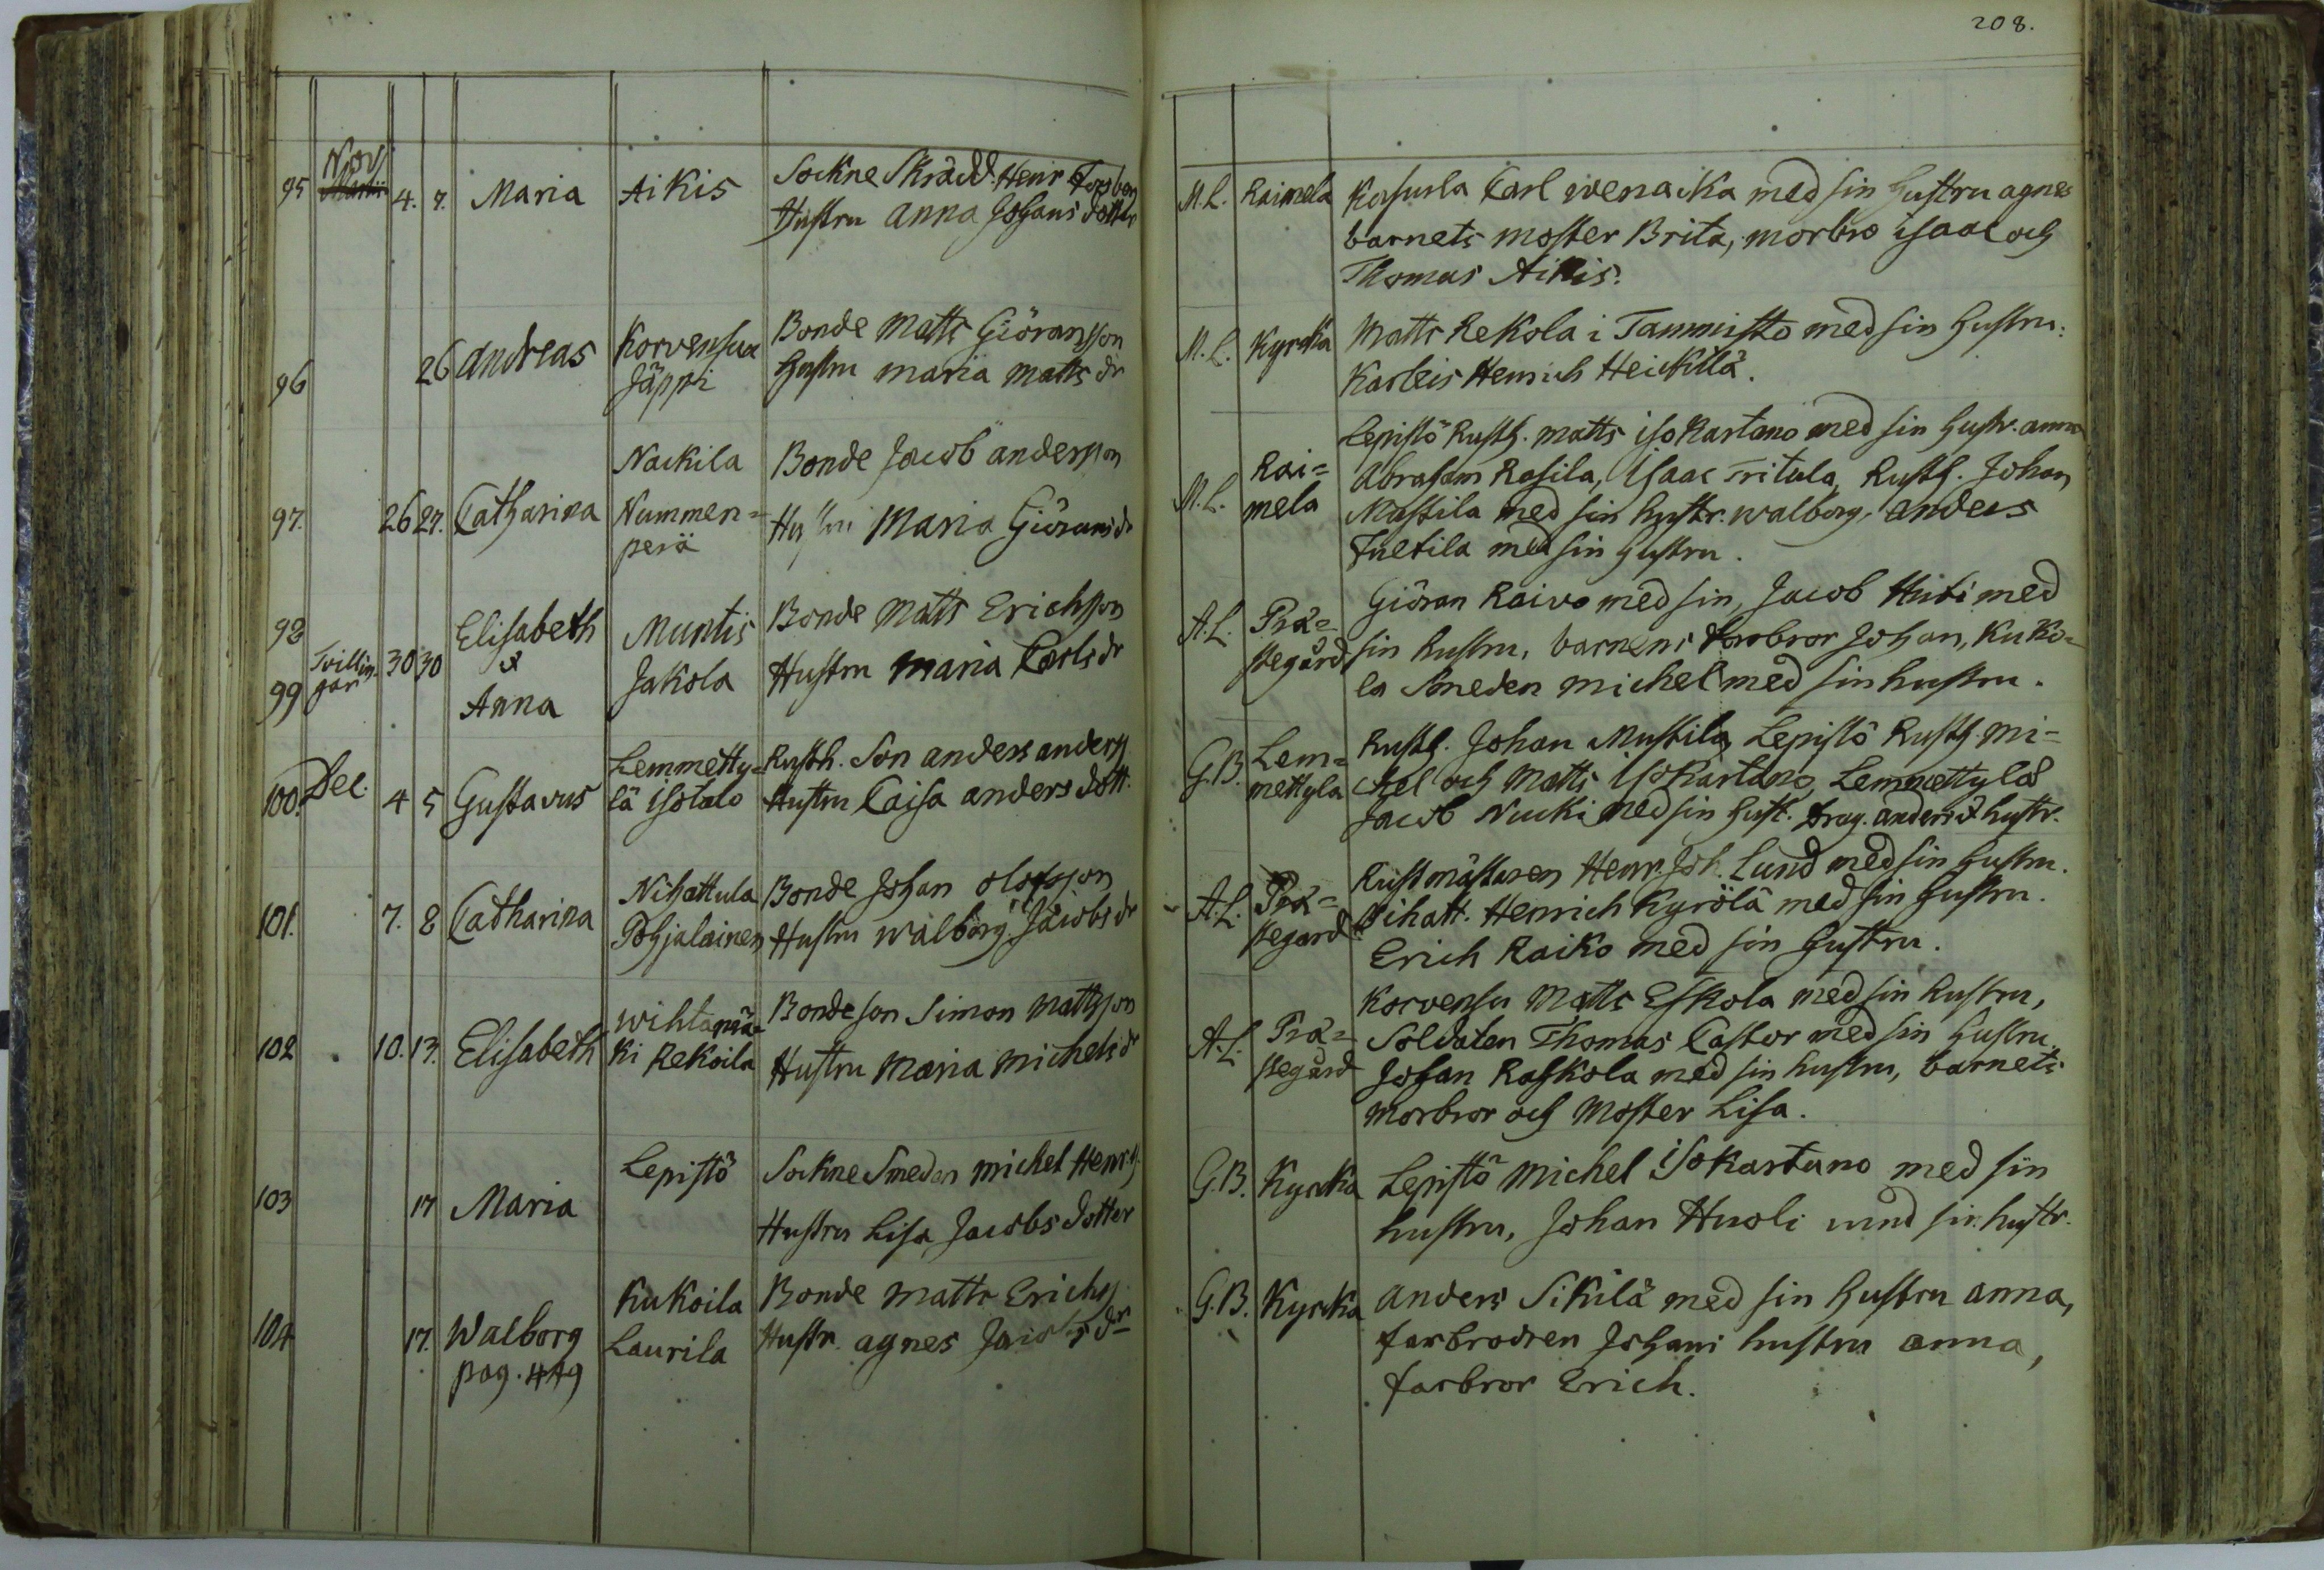 208.
95 Nov Martii 4. 7. Maria Aikis Sockne Skrädd. Henr Forsberg
Hustru Anna Johans dotter
M.L. Raimela Kasurla Carl wenacka med sin hustru agnes
barnets moster Brita, morbro Isaac och
Thomas Aikis.
96 26 Andreas Korvensuu Bonde Matts Giöransson
Jäppi hustru maria Matts dr
M.L. Kyrcka Matts Rekola i Tammisto med sin hustru.
Karleis Henrich Heickilä.
Nackila Bonde Jacob andersson
97. 26 27. Catharina Nummen=
perä Hustru Maria Giörans dr
M.L. Rai=
mela
Lepistö Rusth. matts iso Kartano med sin hustr. anna
Abraham Rasila, Isaac Tritula, Rusth. Johan
Mustila med sin hustr. walborg, anders
med sin hustru.
98 Elisabeth Muntis Bonde Matts Erichsson
99 Tvillin
gar 30 30 &
Anna Jakola Hustru Maria Carls dr
A.L. Prä=
stegård
Giöran Raivo med sin, Jacob Huti med
sin hustru, barnens farbror Johan, Kuko=
la Smeden michel med sin hustru.
100. Dec. 4 5 Gustavus Lemmetty=
lä isotalo Rusth. Son anders anderss
Hustru Caisa anders dott.
G.B. Lem=
mettyla
Rusth. Johan Mustila, Lepistö Rusth. Mi=
chel och Matts isokartano, Lemmettylä
Jacob Nucki med sin hust. drag. anders & hustr.
101. 7. 8 Catharina Nihattula
Pohjalainen Bonde Johan olofsson
Hustru walborg Jacobs dr
A.L. Prä=
stegård
Rustmästaren Henr. Joh. Lund med sin hustru.
Nihatt. Henrich Kyrölä med sin hustru.
Erich Raiko med sin hustru.
102 10. 13. Elisabeth wihtamä=
ki Rekoila Bondeson Simon Mattsson
Hustru Maria Michels dr
A.L. Prä=
stegård
Korvensu Matts Eskola med sin hustru,
Soldaten Thomas Castor med sin hustru.
Johan Raskola med sin hustru, barnets
morbror och Moster Lisa.
103 17 Maria Lepistö Sockne Smeden michel Henrs.
Hustru Lisa Jacobs dotter
G.B. Kyrcka Lepistö Michel isokartano med sin
hustru, Johan Huoli med sin hustr.
104 17. Walborg
pag. 449 Kukoila
Laurila Bonde Matts Erichss
Hustr. agnes Jacobs dr
G.B. Kyrcka Anders Sikilä med sin hustru anna,
farbrodren Johans hustru anna,
farbror Erich.